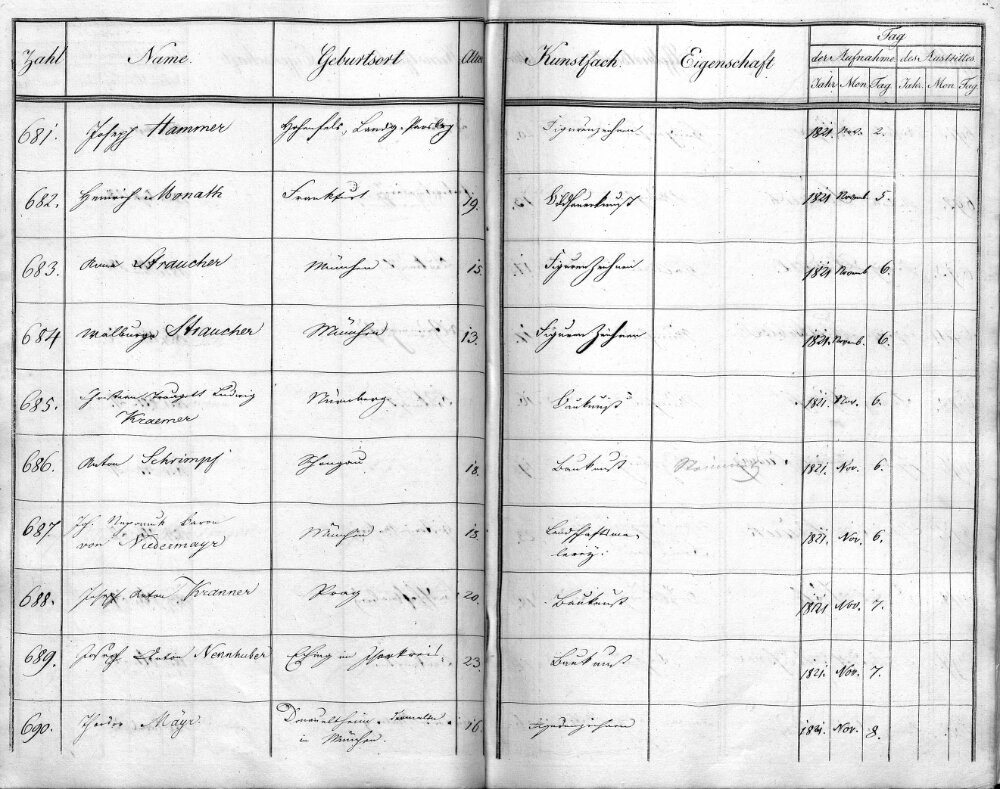 Zahl Name. Geburtsort Alter Kunstfach. Eigenschaft Tag
der Aufnahme des Austrittes
Jahr Mon Tag. Jahr. Mon Tag
681. Joseph Hammer Hohenfels, Landg. Parsberg Figurenzeichnen 1821 Nov. 2.
682. Heinrich Monath Frankfurt 19. Bildhauerkunst 1821 Novemb. 5.
683. Anna Straucher München 15. Figuren Zeichnen 1821 Novemb. 6.
684 Walburga Straucher München 13. Figuren Zeichnen 1821. Novemb. 6.
685. Christian Traugott Ludwig Nürnberg. Baukunst 1821. Nov. 6.
Kraemer
686. Anton Schrimpf Schongau 18. Baukunst 1821. Nov. 6.
687. Joh. Nepomuk Baron München 15. Landschaftsma-
von Niedermayr lerey. 1821. Nov. 6.
688. Joseph Anton Kranner Prag 20. Baukunst 1821 Nov. 7.
689. Joseph Anton Nennhuber in Isarkreis. 23. Baukunst 1821. Nov. 7.
690. Theodor Mayr. 16. 1821. Nov. 8.
in München.